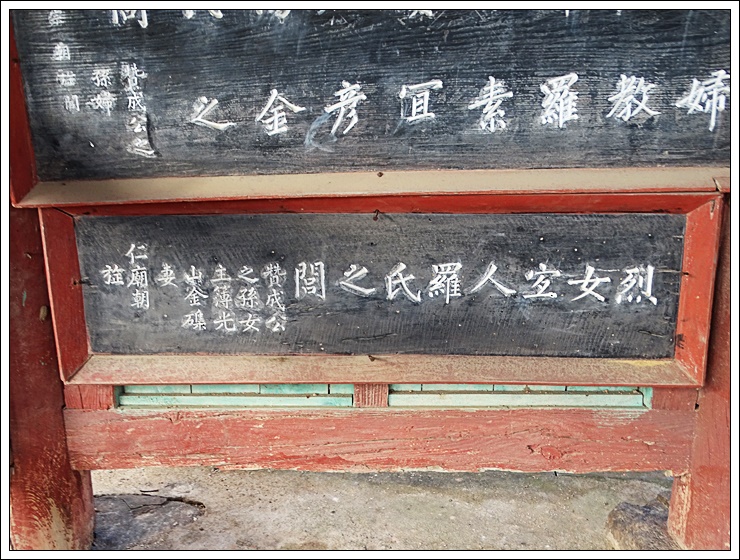 婦教羅素冝彦金之
贊成公之
孫婦
廟旌閭
烈女宐人羅氏之閭
贊成公
之孫女
主簿光
山金
妻
仁廟朝
旌